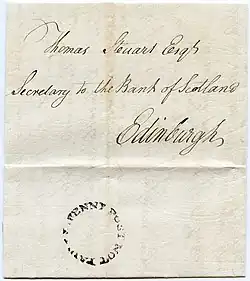 Thomas Steuart Esqr
Secretary to the Bank of Scotland
Edinburgh
PENNY POST NOT PAID